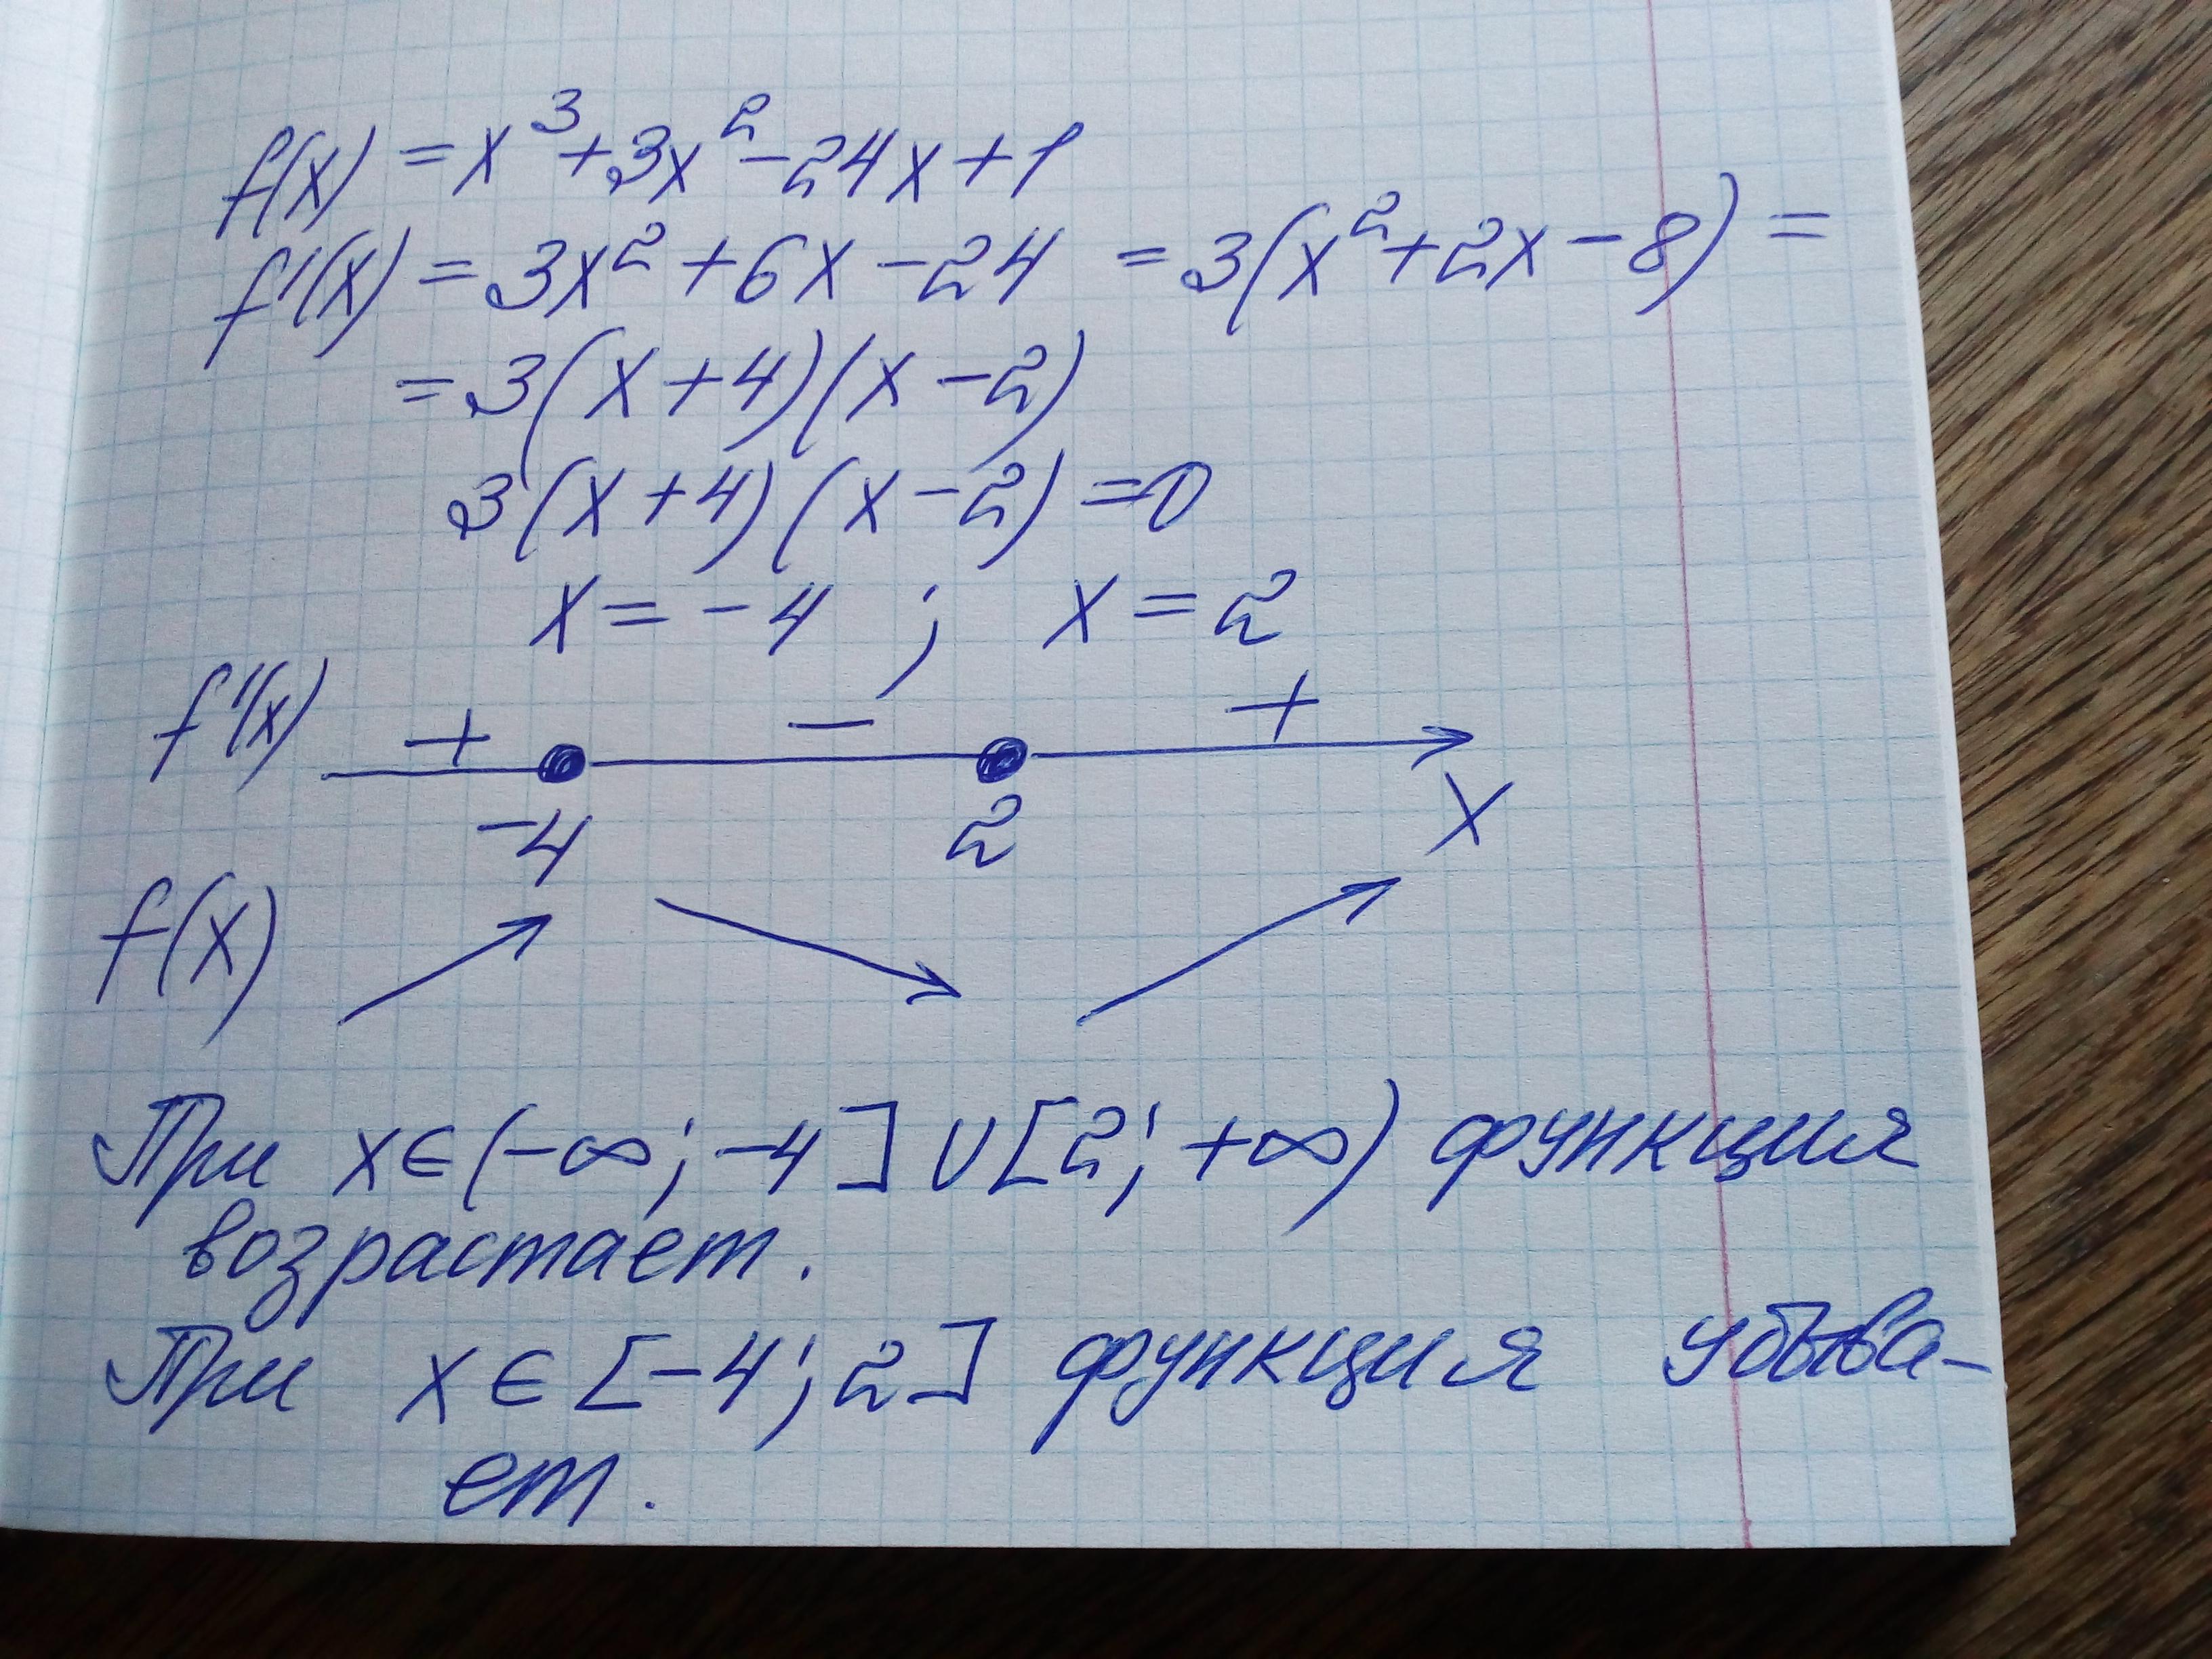 f(x) = x³+3x²-24x+1
f'(x) = 3x²+6x-24 = 3(x²+2x-8) =
= 3(x+4)(x-2)
3(x+4)(x-2)=0
x = -4 ; x = 2
f'(x) + - +
-4 2 x
f(x)
При x∈(-∞;-4]∪[2;+∞) функция
возрастает.
При x∈[-4;2] функция убыва-
ет.